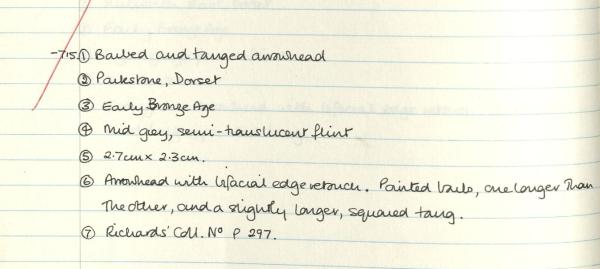 -715. ① Barbed and tanged arrowhead
② Parkstone, Dorset
③ Early Bronze Age
④ Mid grey, semi-translucent flint
⑤ 2.7cm x 2.3cm.
⑥ Arrowhead with bifacial edge retouch. Pointed barbs, one longer than
the other, and a slightly longer, squared tang.
⑦ Richards' Coll. Nº P 297.